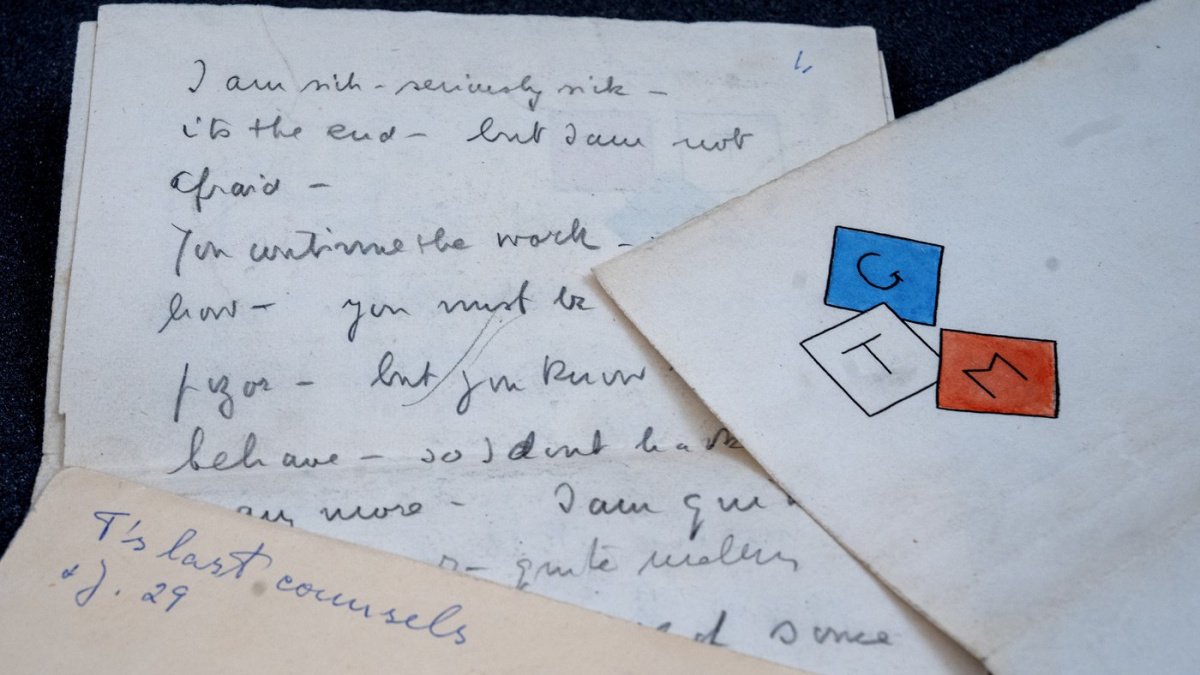 I am sick - seriously sick -
its the end - but I am not
afraid -
You continue the work -
how - you must be
but you know
behave - so I dont
any more - I am
quite
some
G
T
M
T's last counsels
29